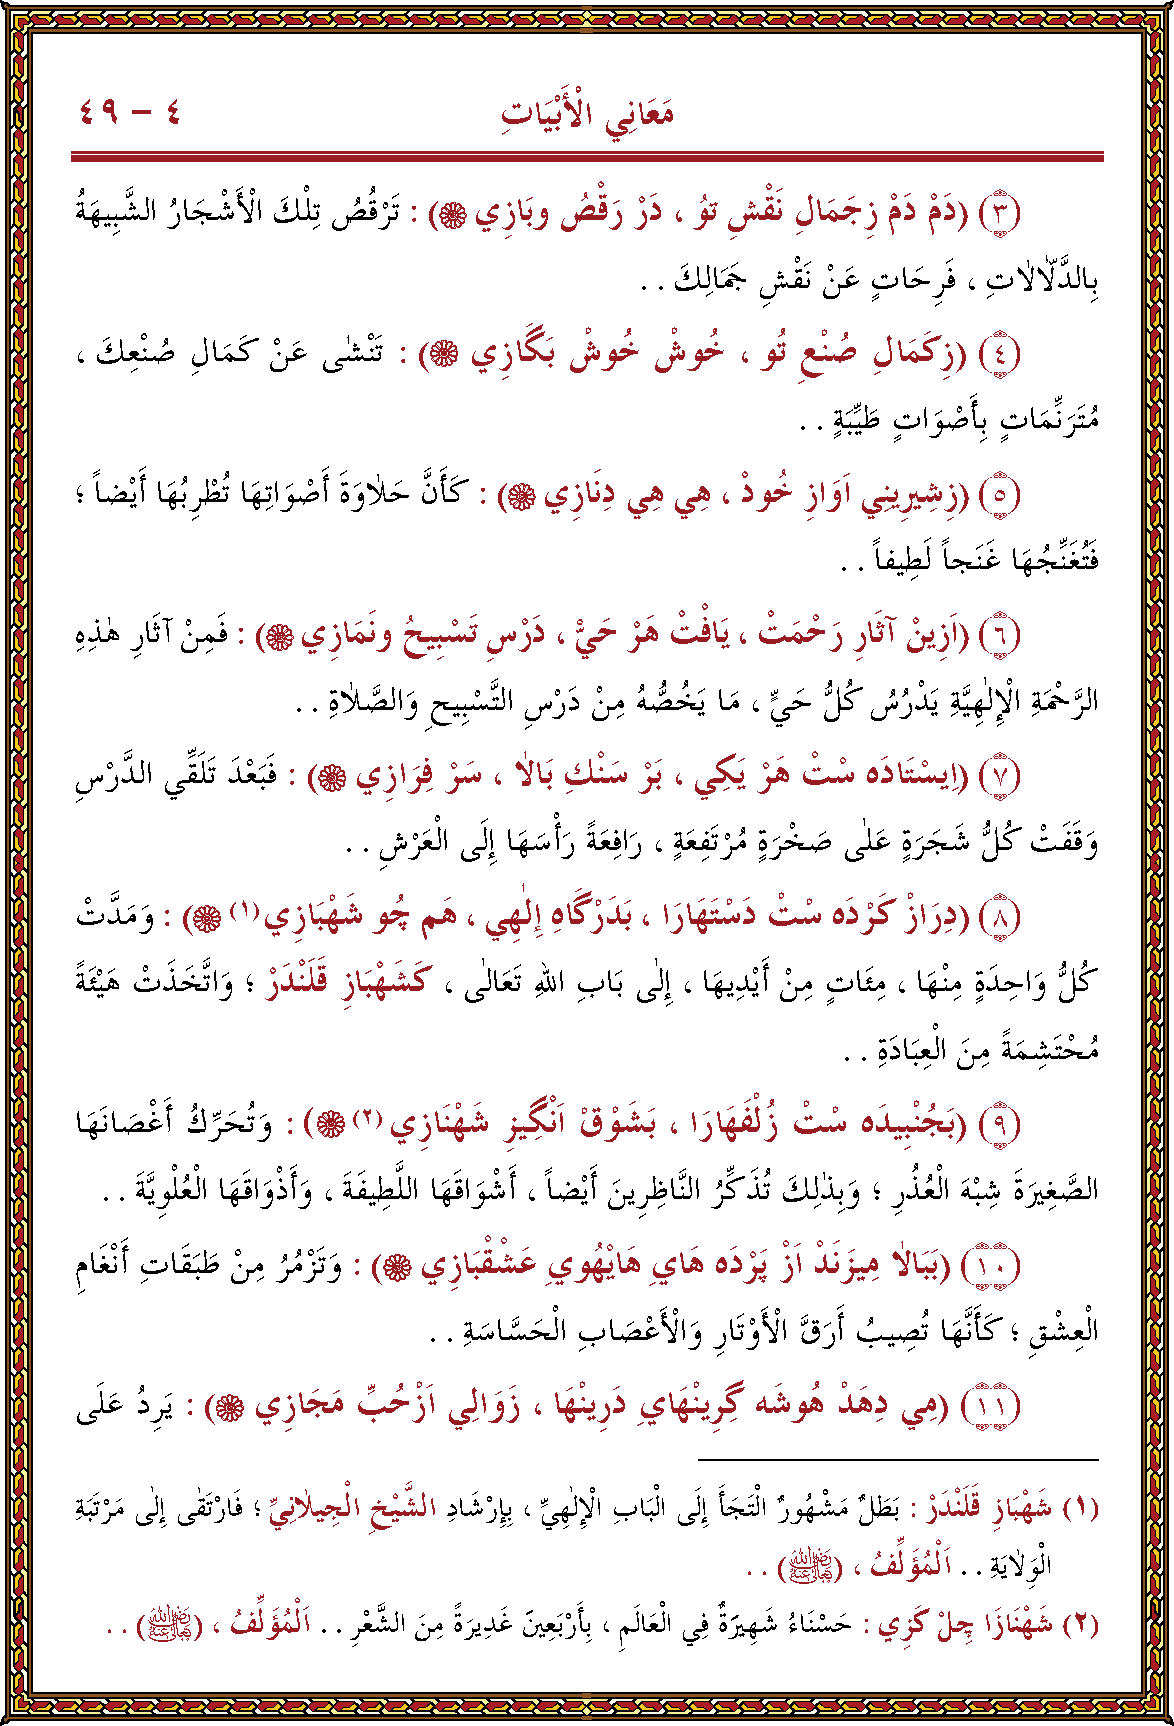 مَعَانِي الْأَبْيَاتِ ٤ – ٤٩
(٣) (دَمْ دَمْ زِجَمَالِ نَقْشِ تُو ، دَرْ رَقْصُ وبَازِي ❁) : تَرْقُصُ تِلْكَ الْأَشْجَارُ الشَّبِيهَةُ
بِالدَّلَّالَاتِ ، فَرِحَاتٍ عَنْ نَقْشِ جَمَالِكَ . .
(٤) (زِكَمَالِ صُنْعِ تُو ، خُوشْ خُوشْ بَگَازِي ❁) : تَنْشٰى عَنْ كَمَالِ صُنْعِكَ ،
مُتَرَنِّمَاتٍ بِأَصْوَاتٍ طَيِّبَةٍ . .
(٥) (زِشِيرِينِي اَوَازِ خُودْ ، هِي هِي دِنَازِي ❁) : كَأَنَّ حَلَاوَةَ أَصْوَاتِهَا تُطْرِبُهَا أَيْضاً ؛
فَتُغَنِّجُهَا غَنَجاً لَطِيفاً . .
(٦) (اَزِينْ آثَارِ رَحْمَتْ ، يَافْتْ هَرْ حَيّْ ، دَرْسِ تَسْبِيحُ ونَمَازِي ❁) : فَمِنْ آثَارِ هٰذِهِ
الرَّحْمَةِ الْإِلٰهِيَّةِ يَدْرُسُ كُلُّ حَيٍّ ، مَا يَخُصُّهُ مِنْ دَرْسِ التَّسْبِيحِ وَالصَّلَاةِ . .
(٧) (اِيسْتَادَه سْتْ هَرْ يَكِي ، بَرْ سَنْكِ بَالَا ، سَرْ فِرَازِي ❁) : فَبَعْدَ تَلَقِّي الدَّرْسِ
وَقَفَتْ كُلُّ شَجَرَةٍ عَلٰى صَخْرَةٍ مُرْتَفِعَةٍ ، رَافِعَةً رَأْسَهَا إِلَى الْعَرْشِ . .
(٨) (دِرَازْ كَرْدَه سْتْ دَسْتَهَارَا ، بَدَرْگَاهِ إِلٰهِي ، هَم چُو شَهْبَازِي (١) ❁) : وَمَدَّتْ
كُلُّ وَاحِدَةٍ مِنْهَا ، مِئَاتٍ مِنْ أَيْدِيهَا ، إِلٰى بَابِ اللهِ تَعَالٰى ، كَشَهْبَازِ قَلَنْدَرْ ؛ وَاتَّخَذَتْ هَيْئَةً
مُحْتَشِمَةً مِنَ الْعِبَادَةِ . .
(٩) (بَجُنْبِيدَه سْتْ زُلْفَهَارَا ، بَشَوْقْ اَنْگِيزِ شَهْنَازِي (٢) ❁) : وَتُحَرِّكُ أَغْصَانَهَا
الصَّغِيرَةَ شِبْهَ الْعُذُرِ ؛ وَبِذٰلِكَ تُذَكِّرُ النَّاظِرِينَ أَيْضاً ، أَشْوَاقَهَا اللَّطِيفَةَ ، وَأَذْوَاقَهَا الْعُلْوِيَّةَ . .
(١٠) (بَبَالَا مِيزَنَدْ اَزْ پَرْدَه هَايِ هَايْهُويِ عَشْقْبَازِي ❁) : وَتَزْمُرُ مِنْ طَبَقَاتِ أَنْغَامِ
الْعِشْقِ ؛ كَأَنَّهَا تُصِيبُ أَرَقَّ الْأَوْتَارِ وَالْأَعْصَابِ الْحَسَّاسَةِ . .
(١١) (مِي دِهَدْ هُوشَه گِرِينْهَايِ دَرِينْهَا ، زَوَالِي اَزْحُبِّ مَجَازِي ❁) : يَرِدُ عَلَى
(١) شَهْبَازِ قَلَنْدَرْ : بَطَلٌ مَشْهُورٌ الْتَجَأَ إِلَى الْبَابِ الْإِلٰهِيِّ ، بِإِرْشَادِ الشَّيْخِ الْجِيلَانِيِّ ؛ فَارْتَقٰى إِلٰى مَرْتَبَةِ
الْوِلَايَةِ . . اَلْمُؤَلِّفُ ، (رَضِيَ اللهُ تَعَالٰى عَنْهُ) . .
(٢) شَهْنَازَا چِلْ كَزِي : حَسْنَاءُ شَهِيرَةٌ فِي الْعَالَمِ ، بِأَرْبَعِينَ غَدِيرَةً مِنَ الشَّعْرِ . . اَلْمُؤَلِّفُ ، (رَضِيَ اللهُ تَعَالٰى عَنْهُ) . .